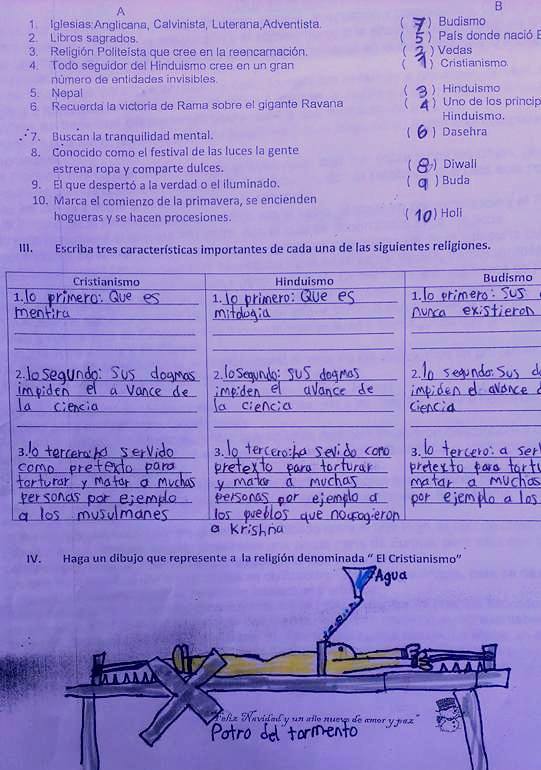 A B
1. Iglesias:Anglicana, Calvinista, Luterana,Adventista. ( 7 ) Budismo
2. Libros sagrados. ( 5 ) País donde nació
3. Religión Politeísta que cree en la reencarnación. ( 2 ) Vedas
4. Todo seguidor del Hinduismo cree en un gran ( 1 ) Cristianismo.
número de entidades invisibles.
5. Nepal ( 3 ) Hinduismo
6. Recuerda la victoria de Rama sobre el gigante Ravana ( 4 ) Uno de los princip
Hinduismo.
7. Buscan la tranquilidad mental. ( 6 ) Dasehra
8. Conocido como el festival de las luces la gente
estrena ropa y comparte dulces. ( 8 ) Diwali
9. El que despertó a la verdad o el iluminado. ( 9 ) Buda
10. Marca el comienzo de la primavera, se encienden
hogueras y se hacen procesiones. ( 10 ) Holi
III. Escriba tres características importantes de cada una de las siguientes religiones.
Cristianismo Hinduismo Budismo
1. lo primero: Que es
mentira
1. lo primero: Que es
mitología
1. lo primero: Sus
nunca existieron
2. lo segundo: Sus dogmas
impiden el avance de
la ciencia
2. lo segundo: sus dogmas
impiden el avance de
la ciencia
2. lo segundo: Sus d
impiden el avance d
ciencia
3. lo tercero: ha servido
como pretexto para
torturar y matar a muchas
personas por ejemplo
a los musulmanes
3. lo tercero: ha sevido como
pretexto para torturar
y matar a muchas
personas por ejemplo a
los pueblos que no acogieron
a Krishna
3. lo tercero: a ser
pretexto para tortu
matar a muchas
por ejemplo a los
IV. Haga un dibujo que represente a la religión denominada “ El Cristianismo”
Agua
Feliz Navidad y un año nuevo de amor y paz"
Potro del tormento